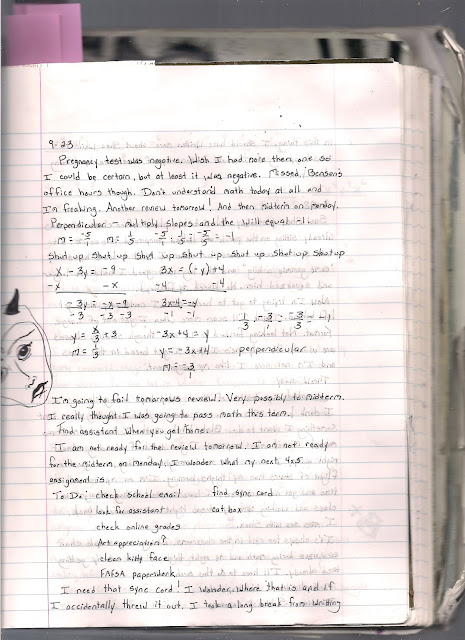 9-23
Pregnancy test was negative. Wish I had more then one so
I could be certain, but at least it was negative. Missed Benson's
office hours though. Don't understand math today at all and
I'm freaking. Another review tomorrow! And then midterm on Monday.
Perpendicular - multiply slopes and the will equal -1
m = -5/1 m = 1/5 -5/1 · 1/5 = -5/5 = -1
Shut up shut up shut up shut up shut up shut up shut up
x - 3y = -9 3x = (-y) + 4
-x -x -4 -4
-3y = -x -9 3x-4 = -y
-3 -3 -3 -1 -1
y = x/3 + 3 -3x+4 = y 1/3 · -3/1 = -3/3 = -1
m = 1/3 y = -3x+4 perpendicular
m = -3/1
I'm going to fail tomorrows review. Very possibly to midterm.
I really thought I was going to pass math this term.
Find assistant when you get home.
I am not ready for the review tomorrow. I am not ready
for the midterm on Monday. I wonder what my next 4x5
assignment is.
To Do: check school email find sync cord
look for assistant cat box
check online grades
Art appreciation?
clean kitty face
FAFSA paperwork
I need that sync cord! I wonder where that is and if
I accidentally threw it out. I took a long break from writing